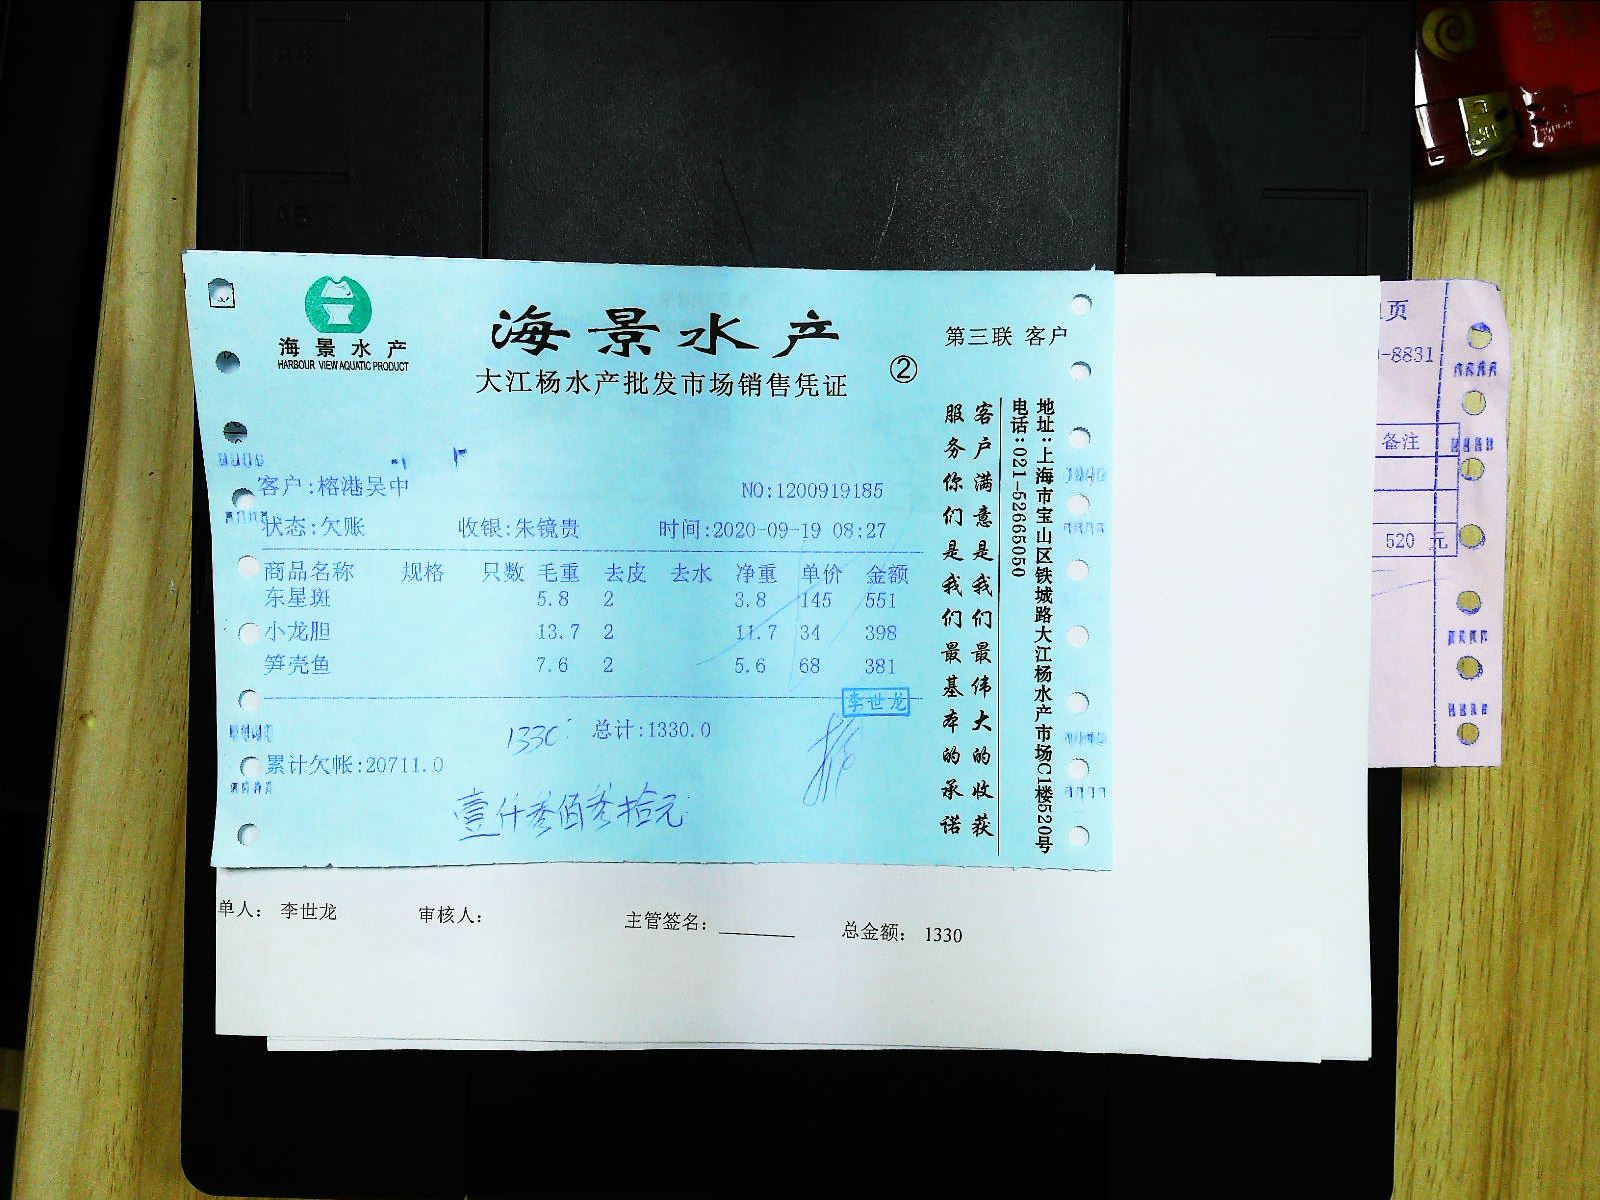 海景水产
HARBOUR VIEW AQUATIC PRODUCT
海景水产
大江杨水产批发市场销售凭证
②
第三联 客户
客户:榕港吴中
NO:1200919185
状态:欠账 收银:朱镜贵 时间:2020-09-19 08:27
商品名称 规格 只数 毛重 去皮 去水 净重 单价 金额
东星斑 5.8 2 3.8 145 551
小龙胆 13.7 2 11.7 34 398
笋壳鱼 7.6 2 5.6 68 381
李世龙
1330 总计:1330.0
累计欠帐:20711.0
壹仟叁佰叁拾元
地址:上海市宝山区铁城路大江杨水产市场C1楼520号
电话:021-52665050
客户满意是我们最伟大的收获
服务你们是我们最基本的承诺
单人: 李世龙 审核人: 主管签名: 总金额: 1330
页
-8831
备注
520 元